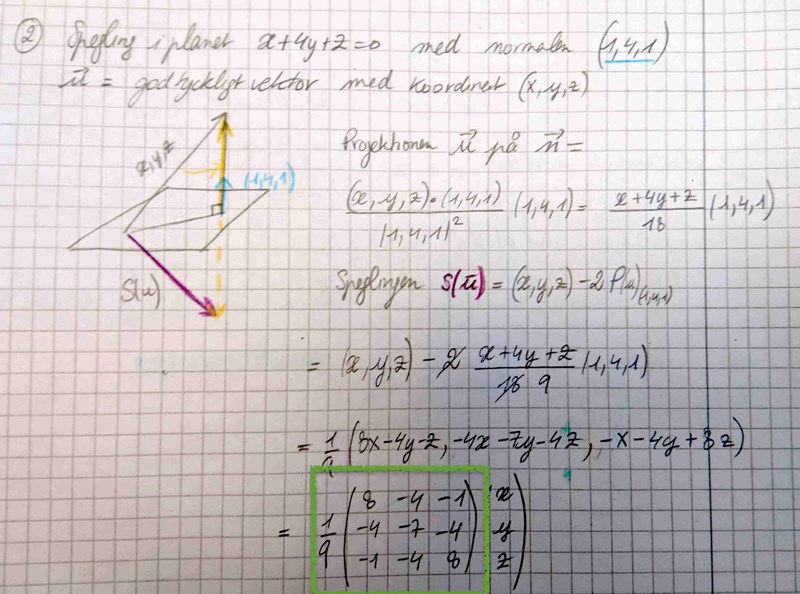 ② Spegling i planet x+4y+z=0 med normalen (1,4,1)
u⃗ = godtyckligt vektor med koordinat (x,y,z)
x,y,z
(1,4,1)
S(u)
Projektionen u⃗ på n⃗ =
(x,y,z)•(1,4,1) / |1,4,1|² (1,4,1) = x+4y+z / 18 (1,4,1)
Speglingen S(ū) = (x,y,z) - 2 P(u)(1,4,1)
= (x,y,z) - 2 x+4y+z / 18 9 (1,4,1)
= 1/9 (8x-4y-z, -4x-7y-4z, -x-4y+8z)
= 1/9 ( 8 -4 -1 ) ( x )
( -4 -7 -4 ) ( y )
( -1 -4 8 ) ( z )